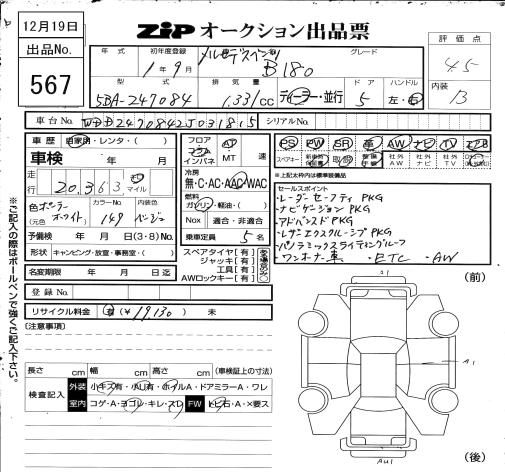 12月19日
ZIP オークション出品票
出品No.
567
年式 初年度登録 グレード
1年9月 メルセデスベンツ B180
評価点
4.5
内装
B
型式 排気量 ドア ハンドル
5BA-247084 1.33L cc ディーラー・並行 5 左・右
車台No. WDD2470842J031815 シリアルNo.
車歴 自家用・レンタ・( )
車検 年 月
フロア AT
インパネ MT 速
PS PW SR 革 AW ナビ TV エアB
スペアキー 新車時保証書 取説 整備手帳 社外AW 社外ナビ 社外TV
※上記太枠内は標準装備品
走行 20,363 km マイル
冷房
無・C・AC・AAC・WAC
燃料
ガソリン・軽油・( )
セールスポイント
・レーダーセーフティPKG
・ナビゲーションPKG
・アドバンスドPKG
・レザーエクスクルーシブPKG
・パノラミックスライディングルーフ
・ワンオーナー車 ・ETC ・AW
色 ポーラーホワイト (元色 ) カラーNo. 149 内装色 ベージュ
NOx 適合・非適合
予備検 年 月 日(3・8)No.
乗車定員 5 名
形状 キャンピング・放送・事務室・( )
スペアタイヤ【有】
ジャッキ【有】
工具【有】
AWロックキー【有】
名変期限 年 月 日迄
登録No.
リサイクル料金 有(¥ 19,130 ) 未
【注意事項】
(前)
A1
長さ cm 幅 cm 高さ cm (車検証上の寸法)
検査記入 外装 小キズ有・小凹有・ホイルA・ドアミラーA・ワレ
室内 コゲ・A・ヨゴレ・キレ・スレ FW トビ石・A・X要ス
AU1
(後)
※ご記入の際はボールペンで強くご記入下さい。